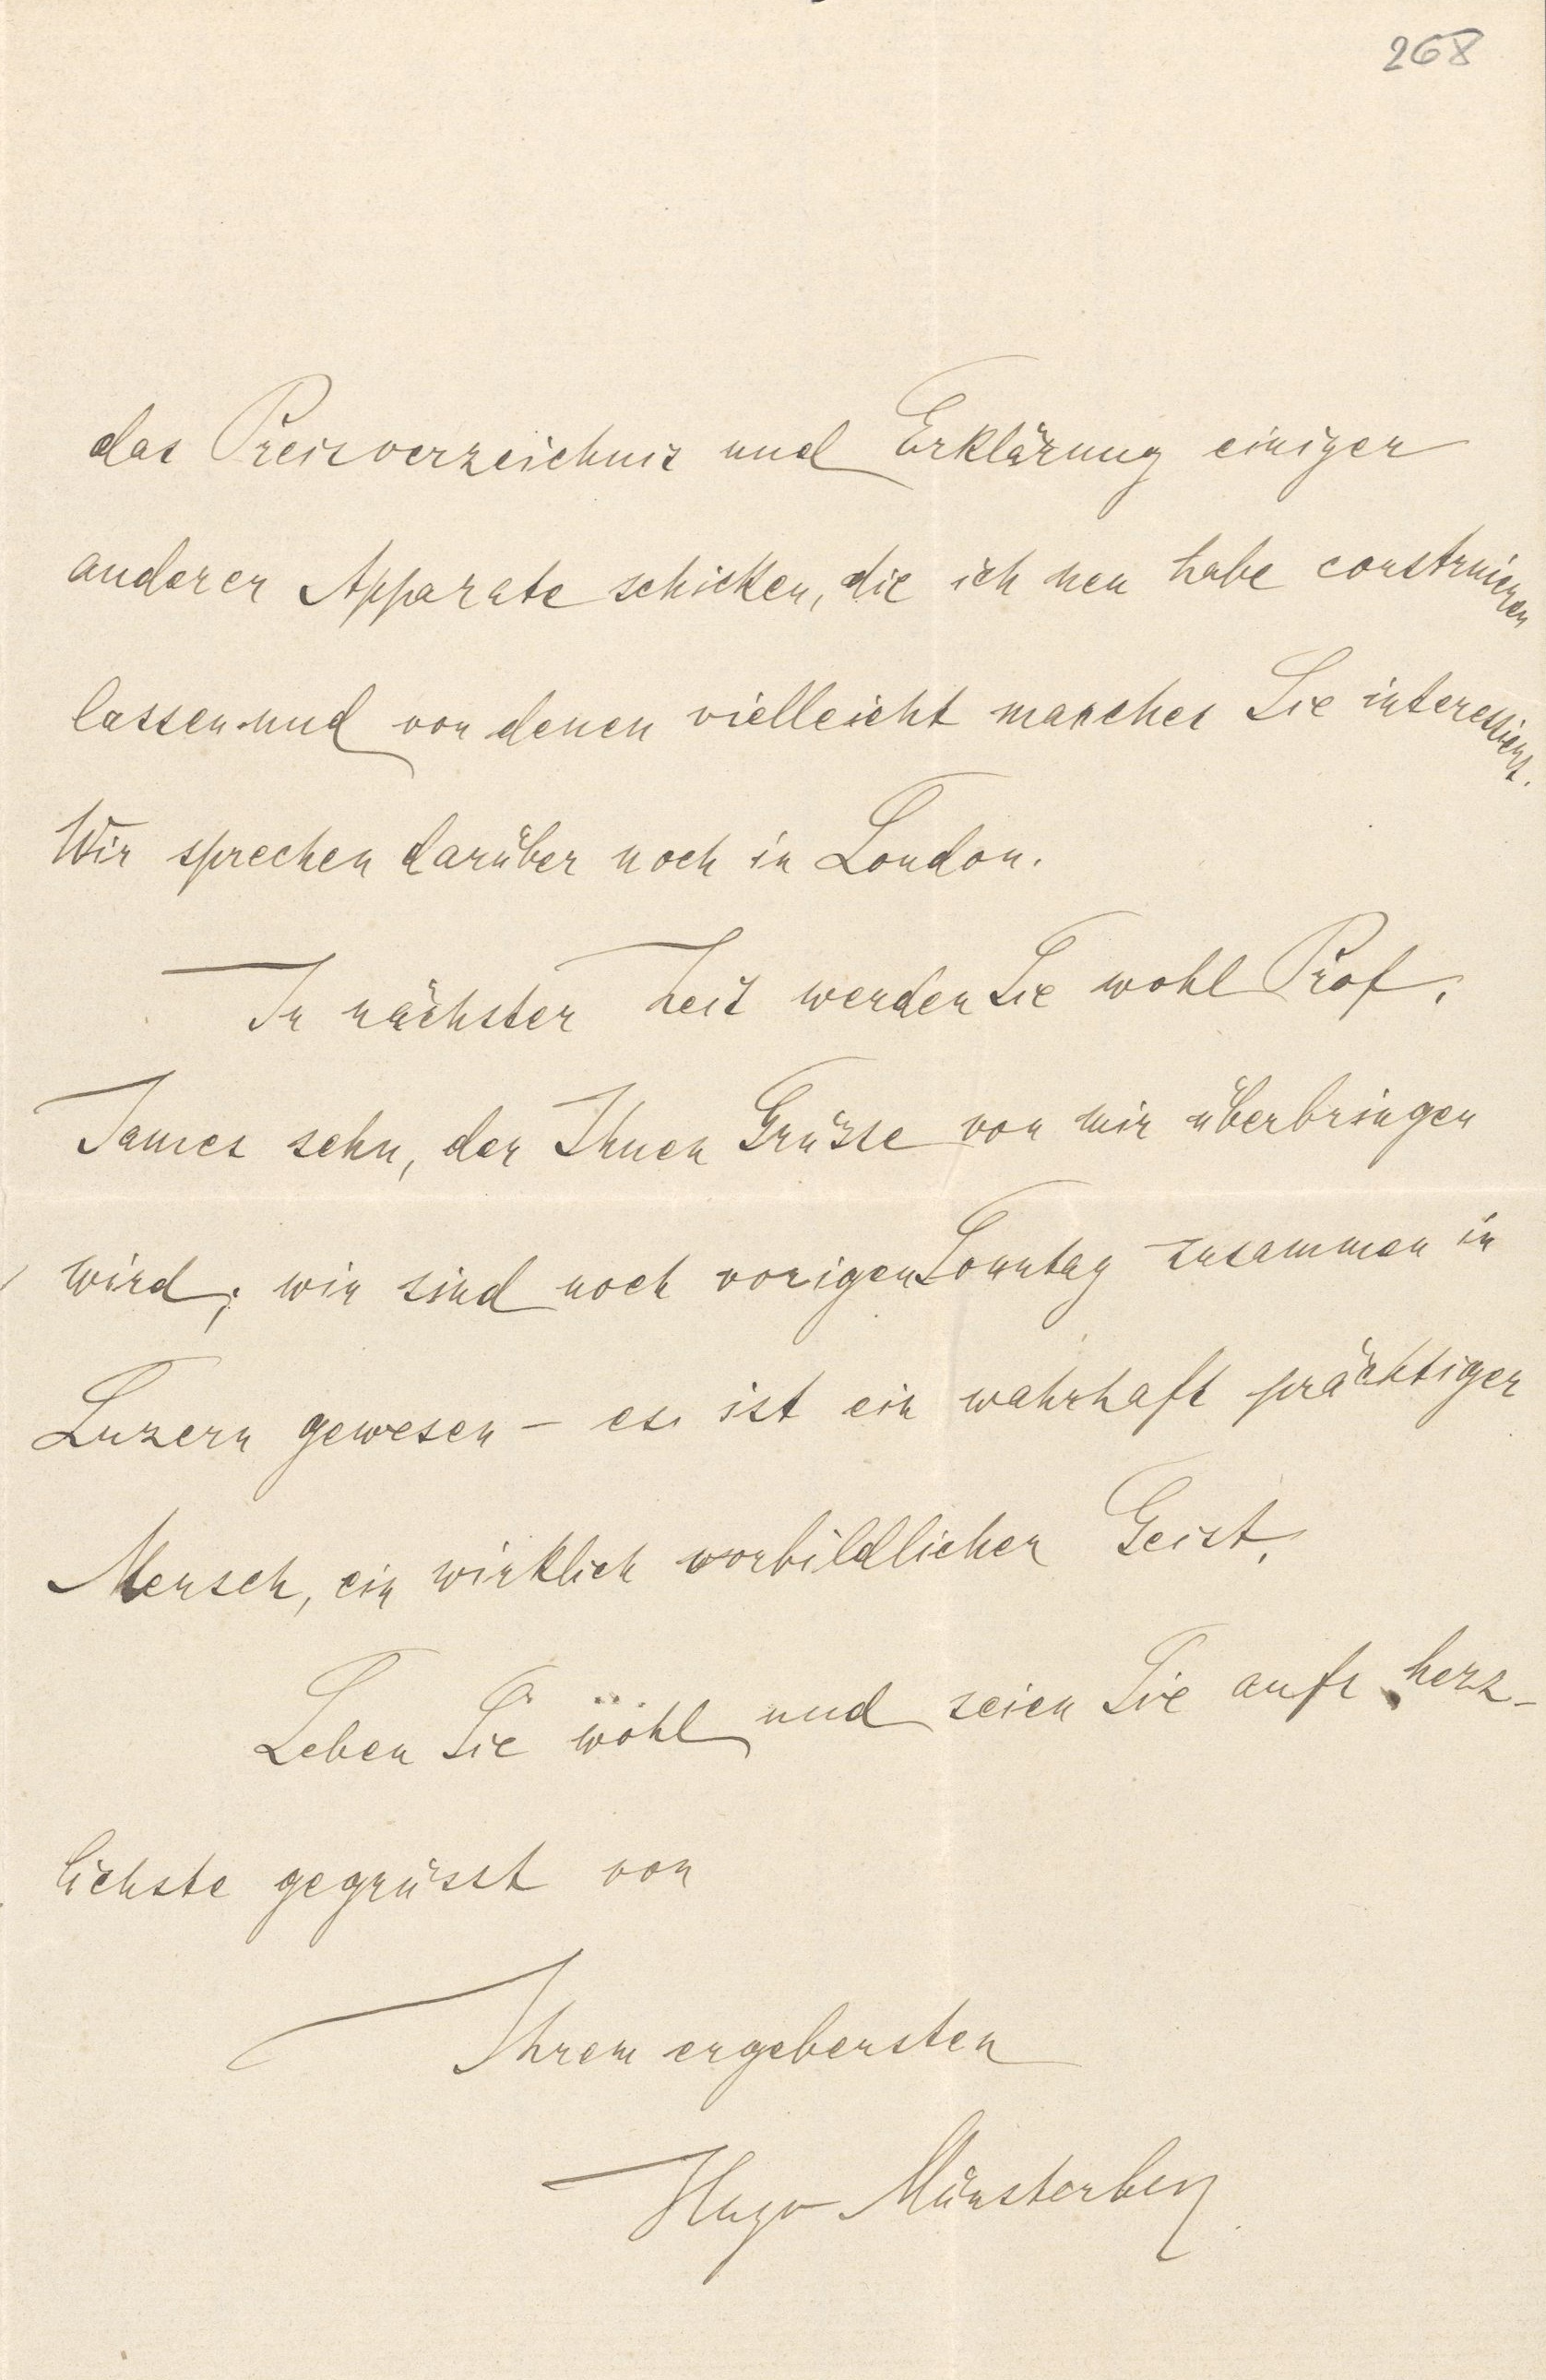 268
das Preisverzeichnis und Erklärung einiger
anderer Apparate schicken, die ich neu habe construieren
lassen und von denen vielleicht manches Sie interessiert.
Wir sprechen darüber noch in London.
In nächster Zeit werden Sie wohl Prof.
James sehn, der Ihnen Grüsse von mir überbringen
wird; wir sind noch vorigen Sonntag zusammen in
Luzern gewesen – es ist ein wahrhaft prächtiger
Mensch, ein wirklich vorbildlicher Geist.
Leben Sie wohl und seien Sie aufs herz-
lichste gegrüsst von
Ihrem ergebensten
Hugo Münsterberg